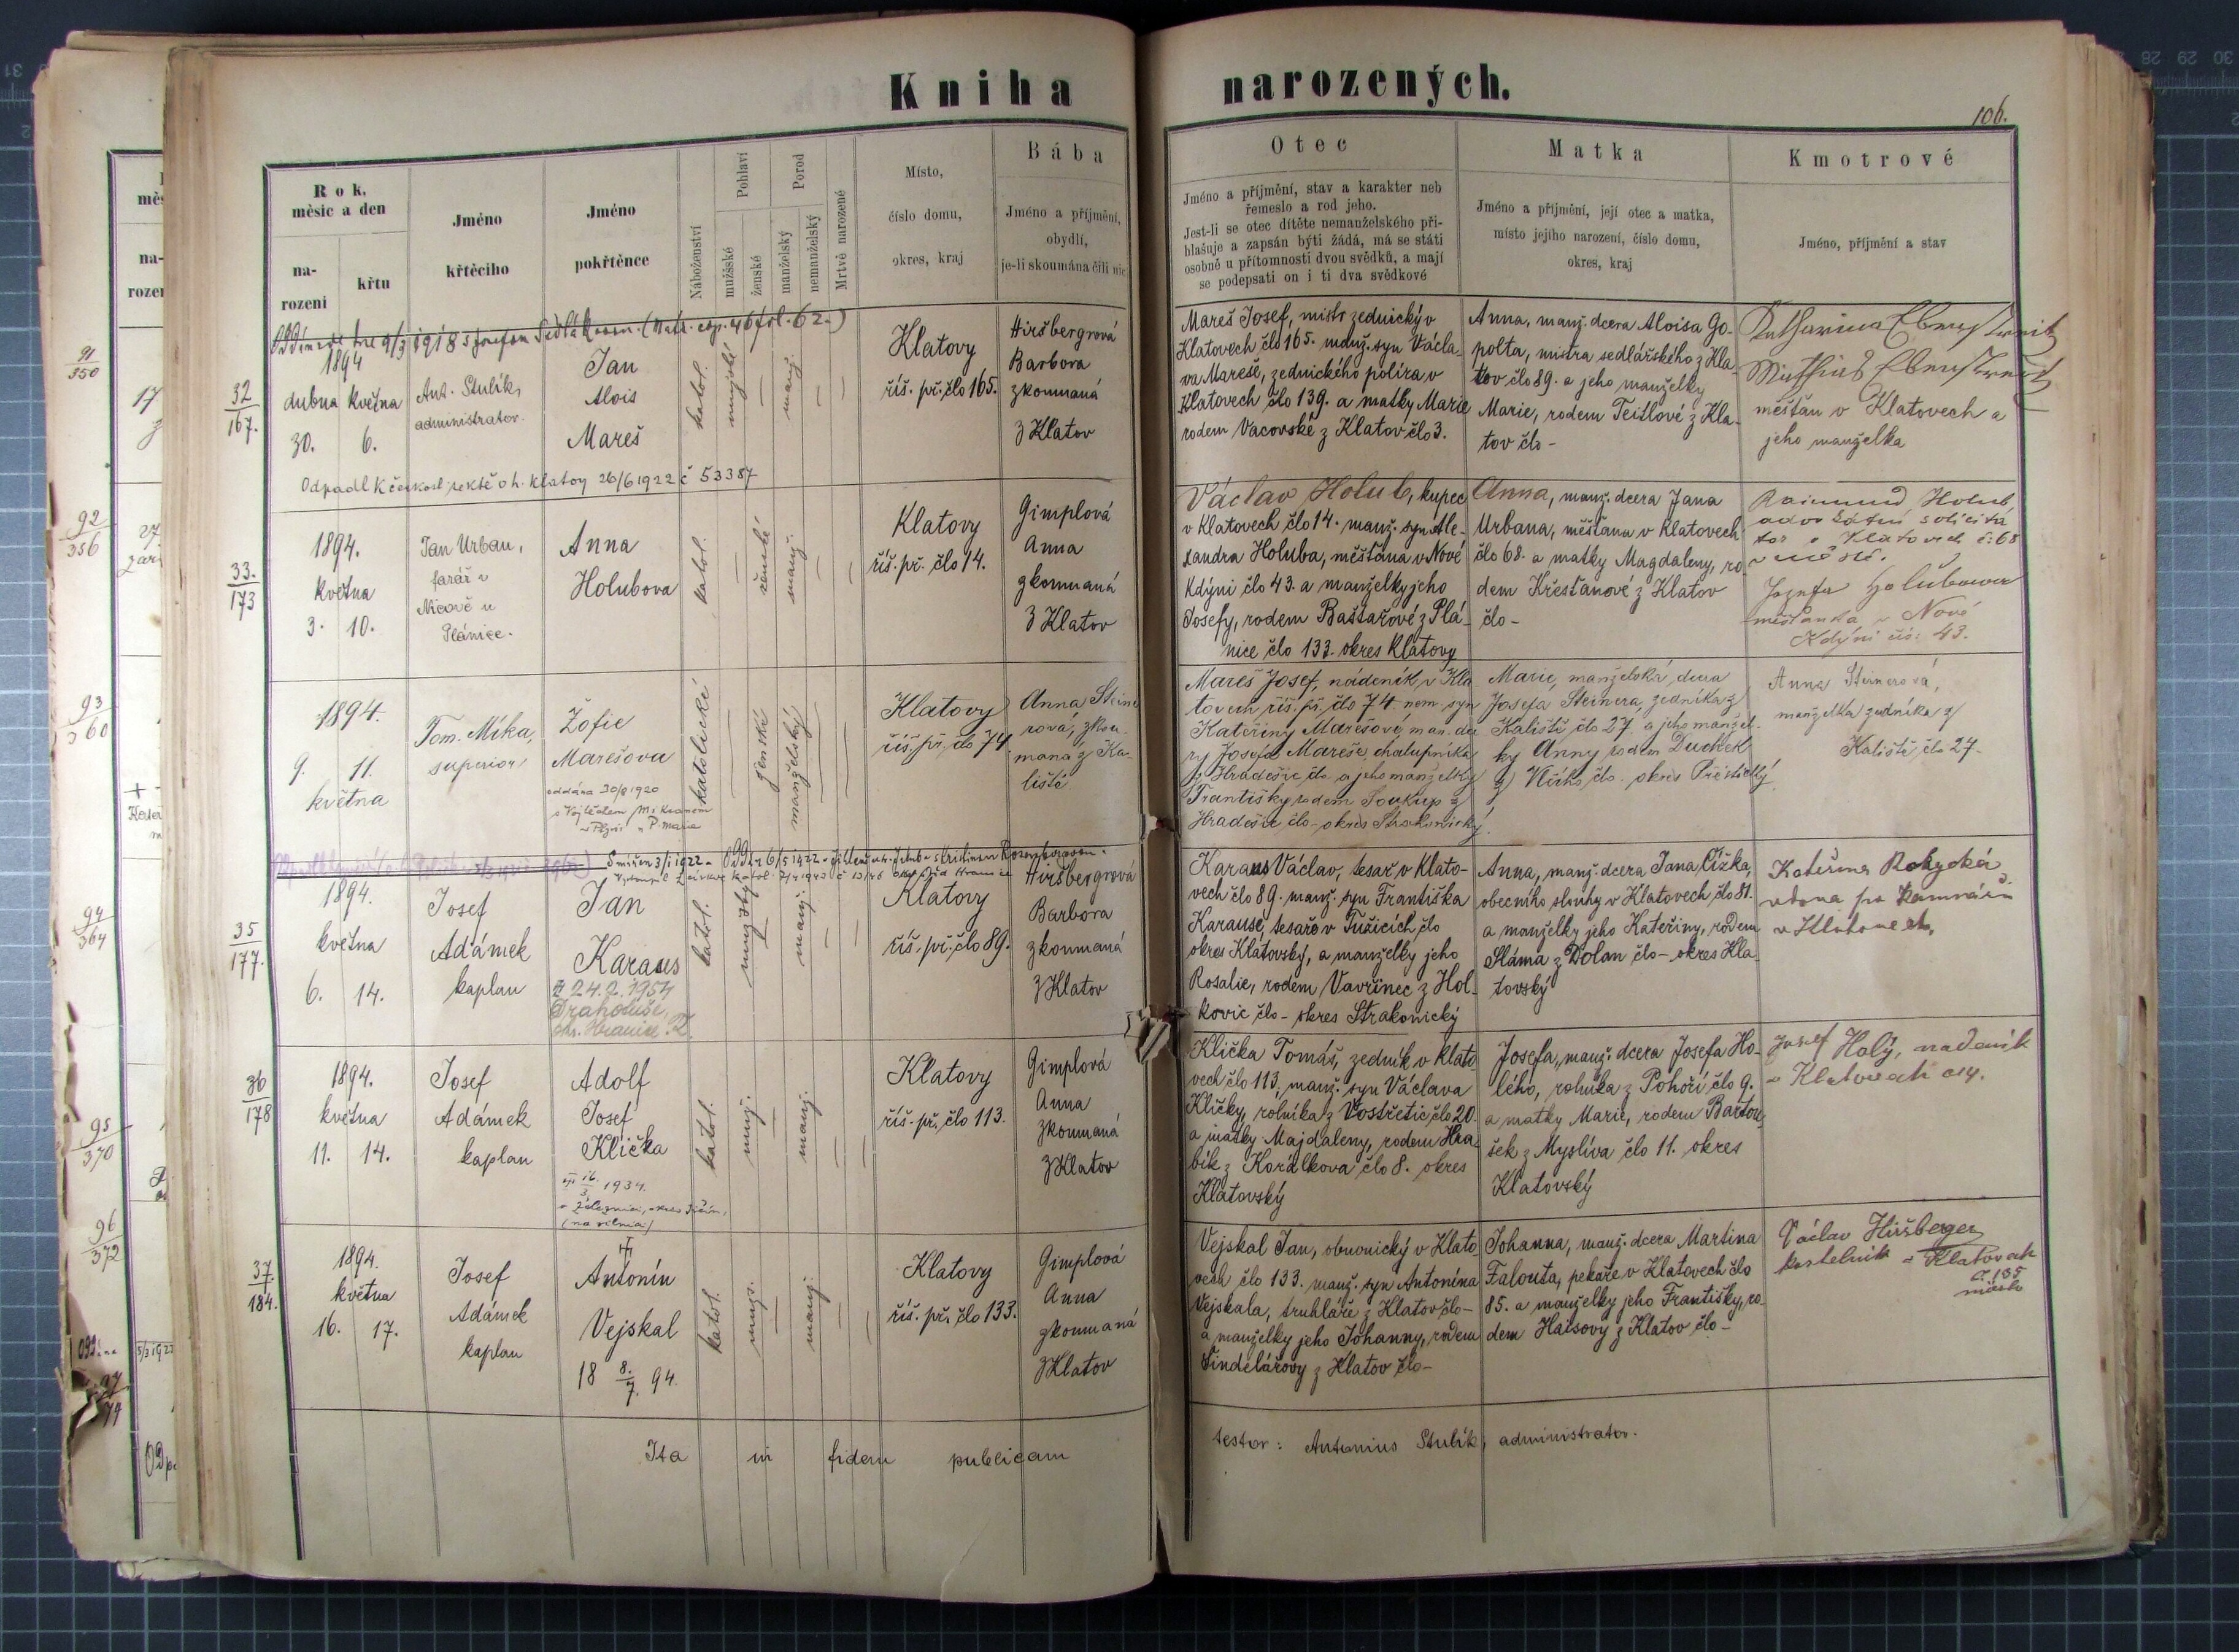 Kniha narozených.
106.
Rok,
měsíc a den
na-
rození
křtu
Jméno
křtěcího
Jméno
pokřtěnce
Náboženství
Pohlaví
mužské
ženské
Porod
manželský
nemanželský
Mrtvě narozené
Místo,
číslo domu,
okres, kraj
Bába
Jméno a příjmění,
obydlí,
je-li skoumána čili nic
Otec
Jméno a příjmění, stav a karakter neb
řemeslo a rod jeho.
Jest-li se otec dítěte nemanželského při-
hlašuje a zapsán býti žádá, má se státi
osobně u přítomnosti dvou svědků, a mají
se podepsati on i ti dva svědkové
Matka
Jméno a příjmění, její otec a matka,
místo jejího narození, číslo domu,
okres, kraj
Kmotrové
Jméno, příjmění a stav
32
167.
1894
dubna května
30. 6.
Ant. Stulík,
administrator.
Jan
Alois
Mareš
katol.
mužské
manž.
Klatovy
říš. př. člo 165.
Hiršbergrová
Barbora
zkoumaná
z Klatov
Mareš Josef, mistr zednický v
Klatovech člo 165. manž. syn Václa-
va Mareše, zednického políra v
Klatovech člo 139. a matky Marie
rodem Vacovské z Klatov člo 3.
Anna, manž. dcera Aloisa Go-
polta, mistra sedlářského z Kla-
tov člo 89. a jeho manželky
Marie, rodem Teitlové z Kla-
tov člo -
měšťan v Klatovech a
jeho manželka
Odpadl k českosl. sektě o h. Klatovy 26/6 1922 č 53387
33.
173
1894.
května
3. 10.
Jan Urban,
farář v
Nicově u
Plánice.
Anna
Holubova
katol.
ženské
manž.
Klatovy
říš. př. člo 14.
Gimplová
Anna
zkoumaná
z Klatov
Václav Holub, kupec
v Klatovech člo 14. manž. syn Ale-
xandra Holuba, měšťana v Nové
Kdýni člo 43. a manželky jeho
Josefy, rodem Baštařové z Plá-
nice člo 133. okres Klatovy
Anna, manž. dcera Jana
Urbana, měšťana v Klatovech
člo 68. a matky Magdaleny, ro-
dem Křesťanové z Klatov
člo -
Raimund Holub
advokátní solicitá
tor v Klatovech č: 68
v městě.
Josefa Holubova
měšťanka v Nové
Kdýni čís: 43.
1894.
9. 11.
května
Tom. Míka,
superior
Žofie
Marešova
oddána 30/8 1920
katolické
ženské
manželský
Klatovy
říš. př. člo 74.
Anna Steine
rová, zkou-
maná z Ka-
liště
Mareš Josef, nádeník v Kla
tovech říš. př. člo 74. nem. syn
Kateřiny Marešové, man. dce
ry Josefa Mareše, chalupníka
z Hradešic člo - a jeho manželky
Františky rodem Soukup z
Hradešic člo - okres Strakonický.
Marie, manželská dcera
Josefa Steinera, zedníka z
Kaliště člo 27. a jeho manžel-
ky Anny rodem Duchek
z Vlčího člo - okres Přeštický.
Anna Steinerová,
manželka zedníka z
Kaliště člo 27.
35
177.
1894.
května
6. 14.
Josef
Adámek
kaplan
Jan
Karaus
24.2.1954
Drahotuše,
okr. Hranice
katol.
mužský
manž.
Klatovy
říš. př. člo 89.
Hiršbergrová
Barbora
zkoumaná
z Klatov
Karaus Václav, tesař v Klato-
vech člo 89. manž. syn Františka
Karause, tesaře v Tužicích člo
okres Klatovský, a manželky jeho
Rosalie, rodem Vavřinec z Hol-
kovic člo - okres Strakonický
Anna, manž. dcera Jana Čížka,
obecního slouhy v Klatovech člo 81.
a manželky jeho Kateřiny, rodem
Sláma z Dolan člo - okres Kla-
tovský
Kateřina Rokycká
vdova po
v Klatovech.
36
178
1894.
května
11. 14.
Josef
Adámek
kaplan
Adolf
Josef
Klička
16.
3. 1934.
katol.
muž.
manž.
Klatovy
říš. př. člo 113.
Gimplová
Anna
zkoumaná
z Klatov
Klička Tomáš, zedník v Klato
vech člo 113, manž. syn Václava
Kličky, rolníka z Vostřetic člo 20.
a matky Majdaleny, rodem Hra-
bík z Korálkova člo 8. okres
Klatovský
Josefa, manž. dcera Josefa Ho-
lého, rolníka z Pohoří člo 9.
a matky Marie, rodem Bartou-
šek z Myslíva člo 11. okres
Klatovský
Josef Holý, nadeník
v Klatovech
37.
184.
1894.
května
16. 17.
Josef
Adámek
kaplan
Antonín
Vejskal
18 8./7. 94.
katol.
muž.
manž.
Klatovy
říš. př. člo 133.
Gimplová
Anna
zkoumaná
z Klatov
Vejskal Jan, obuvnický v Klato
vech člo 133. manž. syn Antonína
Vejskala, truhláře z Klatov člo -
a manželky jeho Johanny, rodem
Šindelářovy z Klatov člo -
Johanna, manž. dcera Martina
Falouta, pekaře v Klatovech člo
85. a manželky jeho Františky, ro-
dem Haisovy z Klatov člo -
Václav Hiršberger
kostelník v Klatovech
č. 135
město
Ita in fidem publicam
testor: Antonius Stulík, administrator.
91
350
92
356
93
360
94
364
95
370
96
372